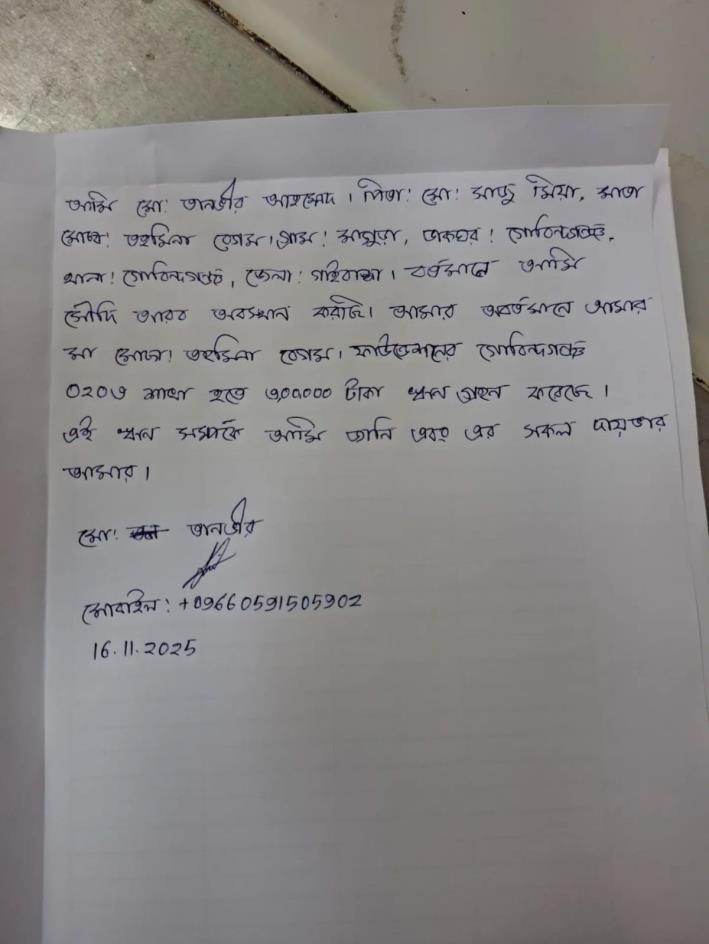 আমি মো: তানভীর আহমেদ । পিতা: মো: সাজু মিয়া, মাতা
মোছা: তহমিনা বেগম। গ্রাম: মাগুরা, ডাকঘর: গোবিন্দগঞ্জ,
থানা: গোবিন্দগঞ্জ, জেলা: গাইবান্ধা । বর্তমানে আমি
সৌদি আরব অবস্থান করছি। আমার অবর্তমানে আমার
মা মোছা: তহমিনা বেগম। ফাউন্ডেশনের গোবিন্দগঞ্জ
০২০৬ শাখা হতে ৩,০০০০০ টাকা ঋন গ্রহন করেছে ।
এই ঋন সম্পর্কে আমি জানি এবং এর সকল দায়ভার
আমার ।
মো: তানভীর
মোবাইল: +09660591505902
16.11.2025